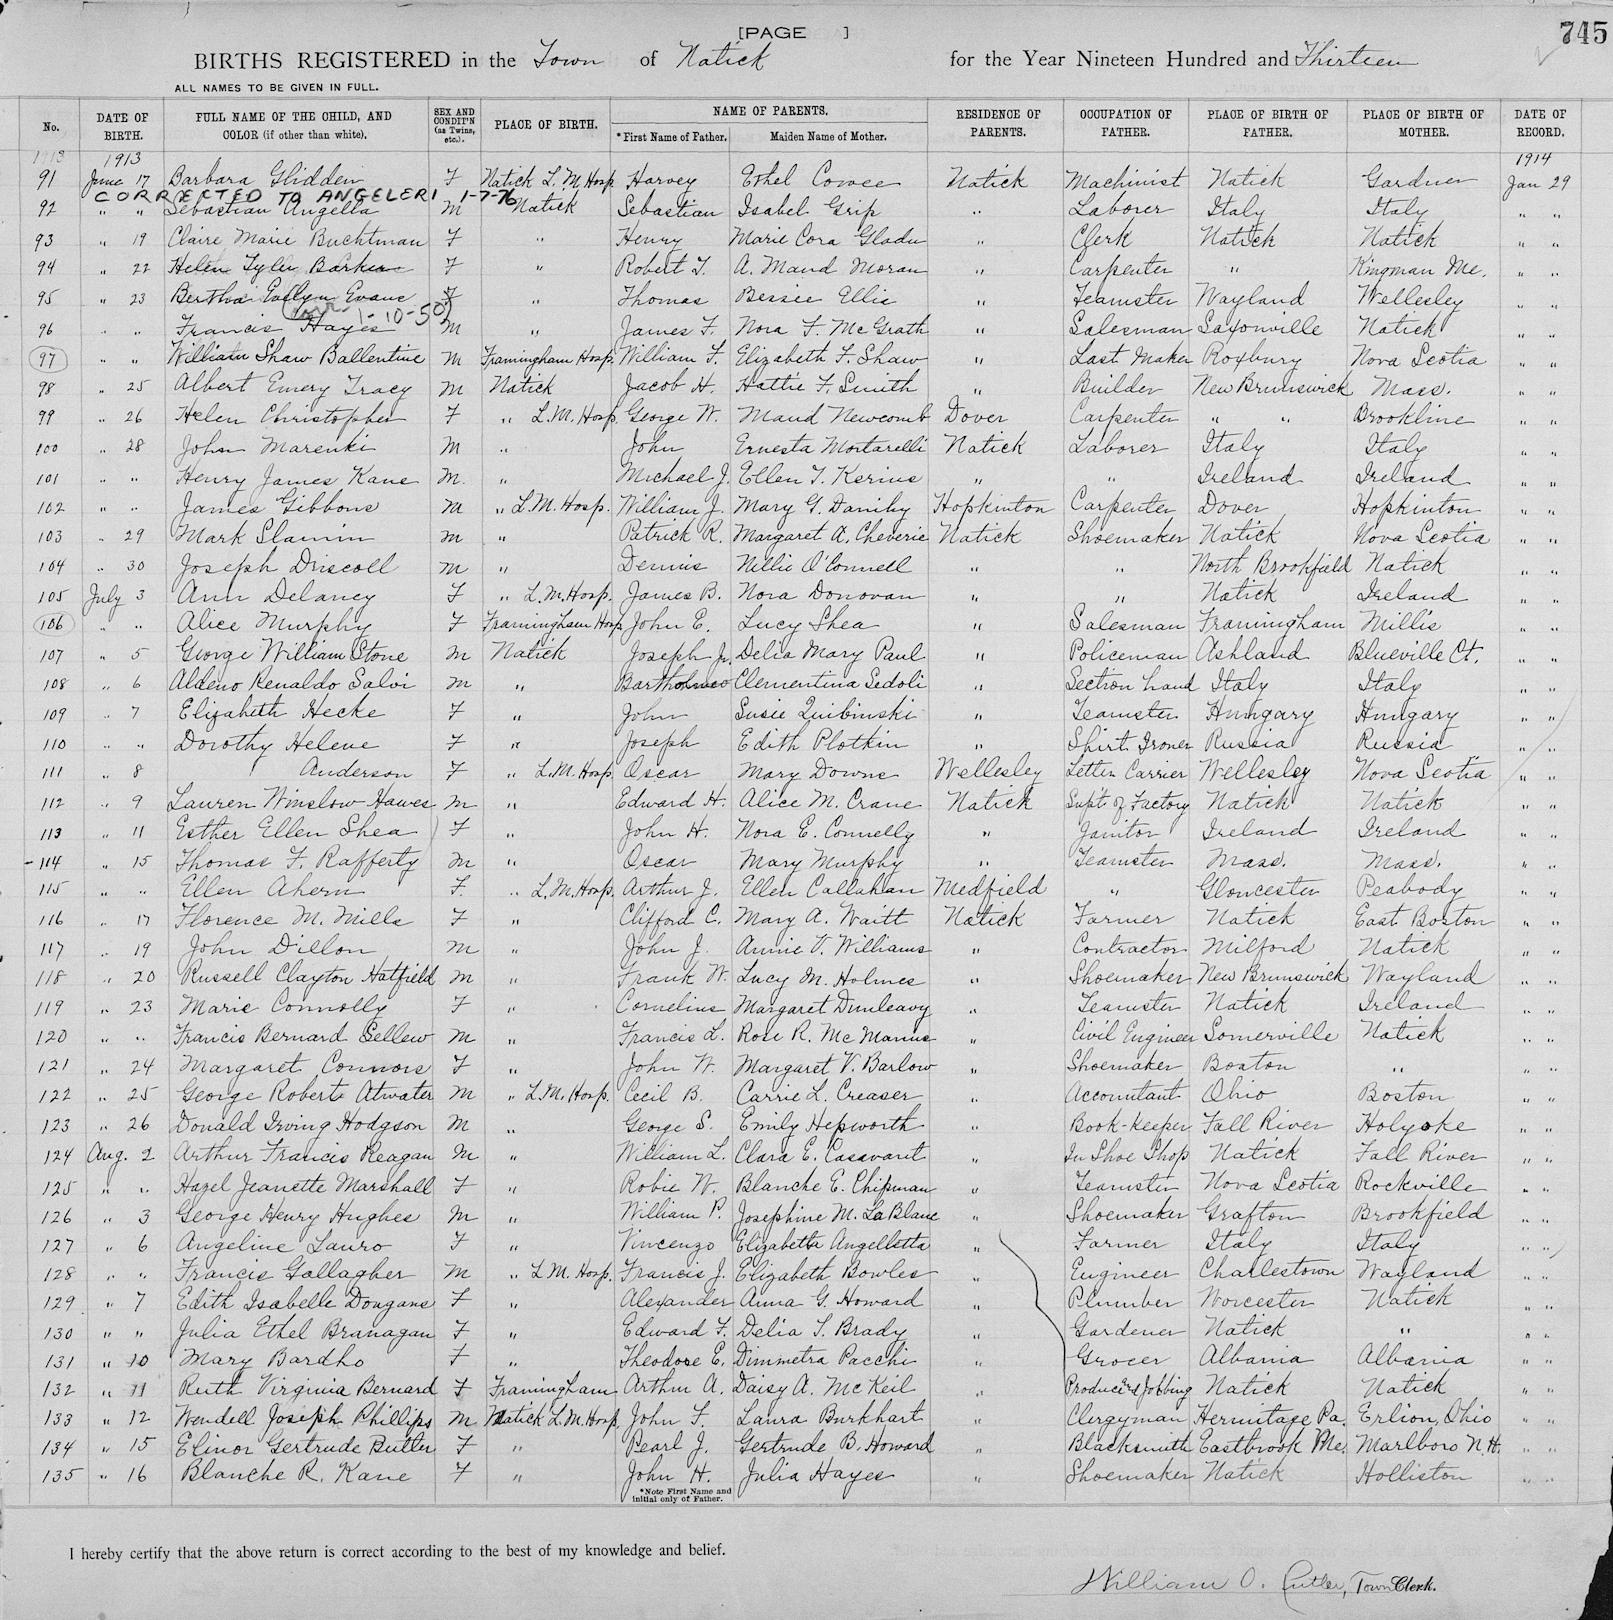 [PAGE ] 745
BIRTHS REGISTERED in the Town of Natick for the Year Nineteen Hundred and Thirteen
ALL NAMES TO BE GIVEN IN FULL.
No. DATE OF BIRTH. FULL NAME OF THE CHILD, AND COLOR (if other than white). SEX AND CONDIT'N (as Twins, etc.). PLACE OF BIRTH. NAME OF PARENTS. *First Name of Father. Maiden Name of Mother. RESIDENCE OF PARENTS. OCCUPATION OF FATHER. PLACE OF BIRTH OF FATHER. PLACE OF BIRTH OF MOTHER. DATE OF RECORD.
1913 1913 1914
91 June 17 Barbara Glidden F Natick L. M. Hosp Harvey Ethel Cowee Natick Machinist Natick Gardner Jan 29
CORRECTED TO ANGELERI 1-7-76
92 " " Sebastian Angella M Natick Sebastian Isabel Grip " Laborer Italy Italy " "
93 " 19 Claire Marie Buchtman F " Henry Marie Cora Gladu " Clerk Natick Natick " "
94 " 22 Helen Tyler Barker F " Robert T. A. Maud Moran " Carpenter " Kingman Me. " "
95 " 23 Bertha Evelyn Evans F " Thomas Bessie Ellis " Teamster Wayland Wellesley " "
1-10-50
96 " " Francis Hayes M " James F. Nora F. McGrath " Salesman Saxonville Natick " "
97 " " William Shaw Ballentine M Framingham Hosp. William F. Elizabeth F. Shaw " Last Maker Roxbury Nova Scotia " "
98 " 25 Albert Emery Tracy M Natick Jacob H. Hattie F. Smith " Builder New Brunswick Mass. " "
99 " 26 Helen Christopher F " L.M. Hosp. George W. Maud Newcomb Dover Carpenter " " Brookline " "
100 " 28 John Marenki M " John Ernesta Mortarelli Natick Laborer Italy Italy " "
101 " " Henry James Kane M. " Michael J. Ellen T. Kerins " " Ireland Ireland " "
102 " " James Gibbons M " L.M. Hosp. William J. Mary G. Danihy Hopkinton Carpenter Dover Hopkinton " "
103 " 29 Mark Slamin M " Patrick R. Margaret A. Cheverie Natick Shoemaker Natick Nova Scotia " "
104 " 30 Joseph Driscoll M " Dennis Nellie O'Connell " " North Brookfield Natick " "
105 July 3 Ann Delaney F " L.M. Hosp. James B. Nora Donovan " " Natick Ireland " "
106 " " Alice Murphy F Framingham Hosp John E. Lucy Shea " Salesman Framingham Millis " "
107 " 5 George William Stone M Natick Joseph Jr. Delia Mary Paul " Policeman Ashland Blueville Ct. " "
108 " 6 Aldeno Renaldo Salvi M " Bartholmeo Clementina Sedoli " Section hand Italy Italy " "
109 " 7 Elizabeth Hecke F " John Susie Quibinski " Teamster Hungary Hungary " "
110 " " Dorothy Helene F " Joseph Edith Plotkin " Shirt Ironer Russia Russia " "
111 " 8 Anderson F " L.M. Hosp. Oscar Mary Downs Wellesley Letter Carrier Wellesley Nova Scotia " "
112 " 9 Lauren Winslow Hawes M " Edward H. Alice M. Crane Natick Supt. of Factory Natick Natick " "
113 " 11 Esther Ellen Shea F " John H. Nora E. Connelly " Janitor Ireland Ireland " "
114 " 15 Thomas F. Rafferty M " Oscar Mary Murphy " Teamster Mass. Mass. " "
115 " " Ellen Ahern F. " L.M. Hosp. Arthur J. Ellen Callahan Medfield " Gloucester Peabody " "
116 " 17 Florence M. Mills F " Clifford C. Mary A. Waitt Natick Farmer Natick East Boston " "
117 " 19 John Dillon M " John J. Annie V. Williams " Contractor Milford Natick " "
118 " 20 Russell Clayton Hatfield M " Frank W. Lucy M. Holmes " Shoemaker New Brunswick Wayland " "
119 " 23 Marie Connolly F " Cornelius Margaret Dunleavy " Teamster Natick Ireland " "
120 " " Francis Bernard Gellew M " Francis L. Rose R. McManus " Civil Engineer Somerville Natick " "
121 " 24 Margaret Connors F " John W. Margaret V. Barlow " Shoemaker Boston " " "
122 " 25 George Roberts Atwater M " L.M. Hosp. Cecil B. Carrie L. Creaser " Accountant Ohio Boston " "
123 " 26 Donald Irving Hodgson M " George S. Emily Hepworth " Book-keeper Fall River Holyoke " "
124 Aug. 2 Arthur Francis Reagan M " William L. Clara E. Casavant " In Shoe Shop Natick Fall River " "
125 " " Hazel Jeanette Marshall F " Robie W. Blanche E. Chipman " Teamster Nova Scotia Rockville " "
126 " 3 George Henry Hughes M " William P. Josephine M. LaBlanc " Shoemaker Grafton Brookfield " "
127 " 6 Angeline Lauro F " Vincenzo Elizabetta Angelletta " Farmer Italy Italy " "
128 " " Francis Gallagher M " L.M. Hosp. Francis J. Elizabeth Bowles " Engineer Charlestown Wayland " "
129 " 7 Edith Isabelle Dougans F " Alexander Anna G. Howard " Plumber Worcester Natick " "
130 " " Julia Ethel Branagan F " Edward F. Delia T. Brady " Gardener Natick " " "
131 " 10 Mary Bardho F " Theodore E. Dimmetra Pacchi " Grocer Albania Albania " "
132 " 11 Ruth Virginia Bernard F Framingham Arthur A. Daisy A. McKeil " Produce Jobbing Natick Natick " "
133 " 12 Wendell Joseph Phillips M Natick L.M. Hosp. John F. Laura Burkhart " Clergyman Hermitage Pa. Erlion, Ohio " "
134 " 15 Elinor Gertrude Butler F " Pearl J. Gertrude B. Howard " Blacksmith Eastbrook Me. Marlboro N.H. " "
135 " 16 Blanche R. Kane F " John H. Julia Hayes " Shoemaker Natick Holliston " "
*Note First Name and
initial only of Father.
I hereby certify that the above return is correct according to the best of my knowledge and belief.
William O. Cutler, Town Clerk.